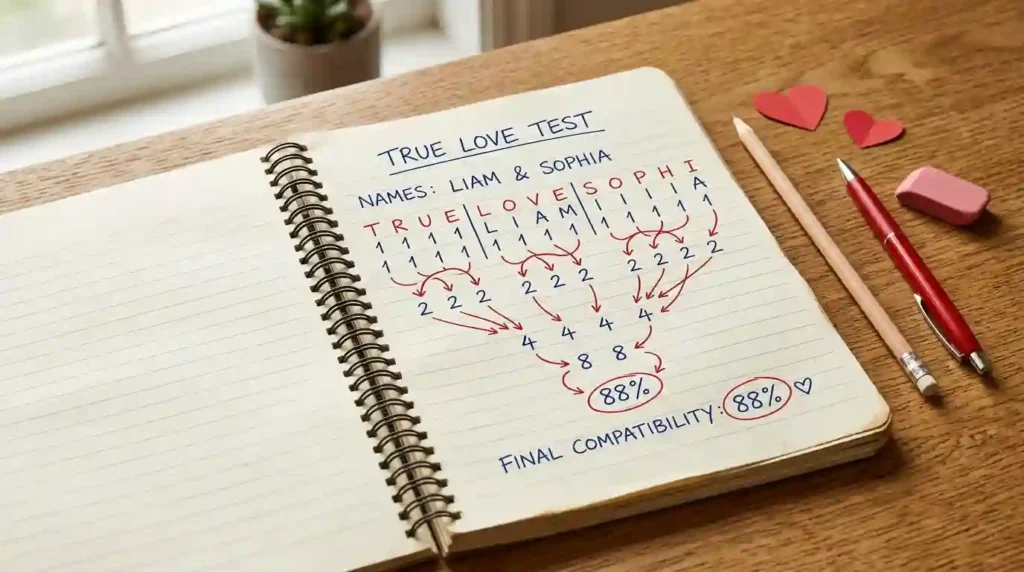 TRUE LOVE TEST
NAMES: LIAM & SOPHIA
T R U E | L O V E | S O P H I
1 1 1 1 | L I A M | 1 1 1 1 A
1 1 1 1 | 1 1 1 1 | 1 1 1 1 1
2 2 2 2 2 2 2 2 2 2
4 4 4 4
8 8
88%
FINAL COMPATIBILITY: 88% ♡